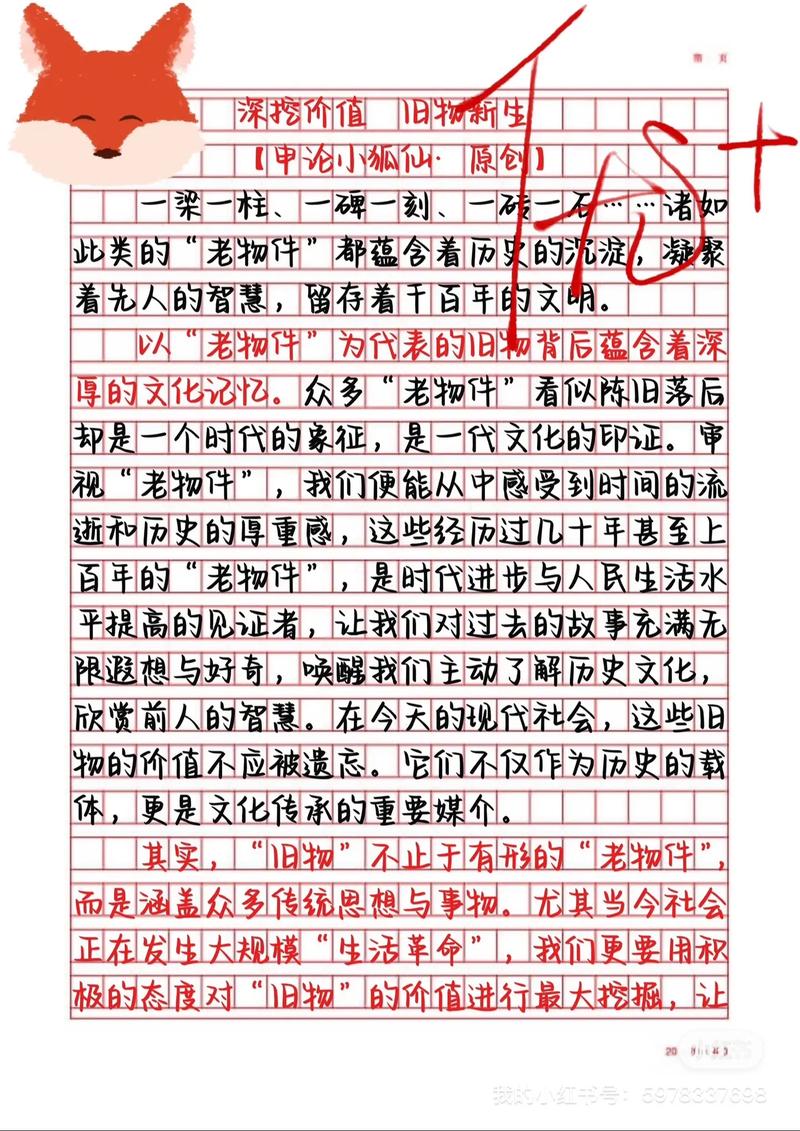 第 页
深挖价值 旧物新生
【申论小狐仙·原创】
一梁一柱、一碑一刻、一砖一石……诸如
此类的“老物件”都蕴含着历史的沉淀，凝聚
着先人的智慧，留存着千百年的文明。
以“老物件”为代表的旧物背后蕴含着深
厚的文化记忆。众多“老物件”看似陈旧落后
却是一个时代的象征，是一代文化的印证。审
视“老物件”，我们便能从中感受到时间的流
逝和历史的厚重感，这些经历过几十年甚至上
百年的“老物件”，是时代进步与人民生活水
平提高的见证者，让我们对过去的故事充满无
限遐想与好奇，唤醒我们主动了解历史文化，
欣赏前人的智慧。在今天的现代社会，这些旧
物的价值不应被遗忘。它们不仅作为历史的载
体，更是文化传承的重要媒介。
其实，“旧物”不止于有形的“老物件”，
而是涵盖众多传统思想与事物。尤其当今社会
正在发生大规模“生活革命”，我们更要用积
极的态度对“旧物”的价值进行最大挖掘，让
小红书
我的小红书号：5978337698